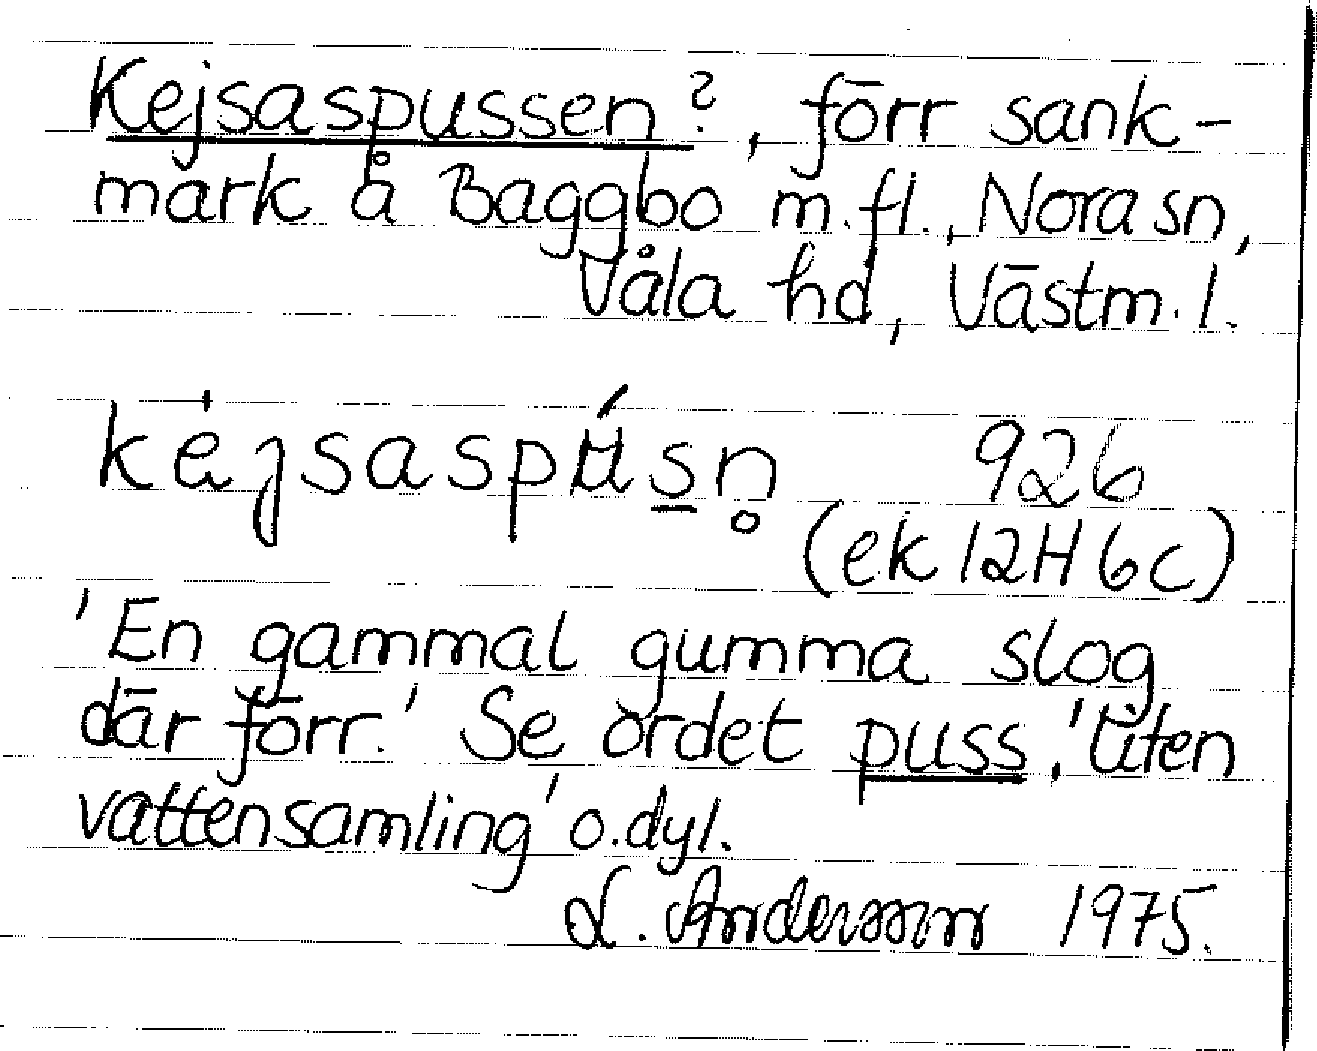 Kejsaspussen?, förr sank-
mark å Baggbo m.fl., Nora sn,
Våla hd, Västm. l.
926
(ek 12H 6c)
'En gammal gumma slog
där förr.' Se ordet puss, 'liten
vattensamling' o.dyl.
L. Andersson 1975.